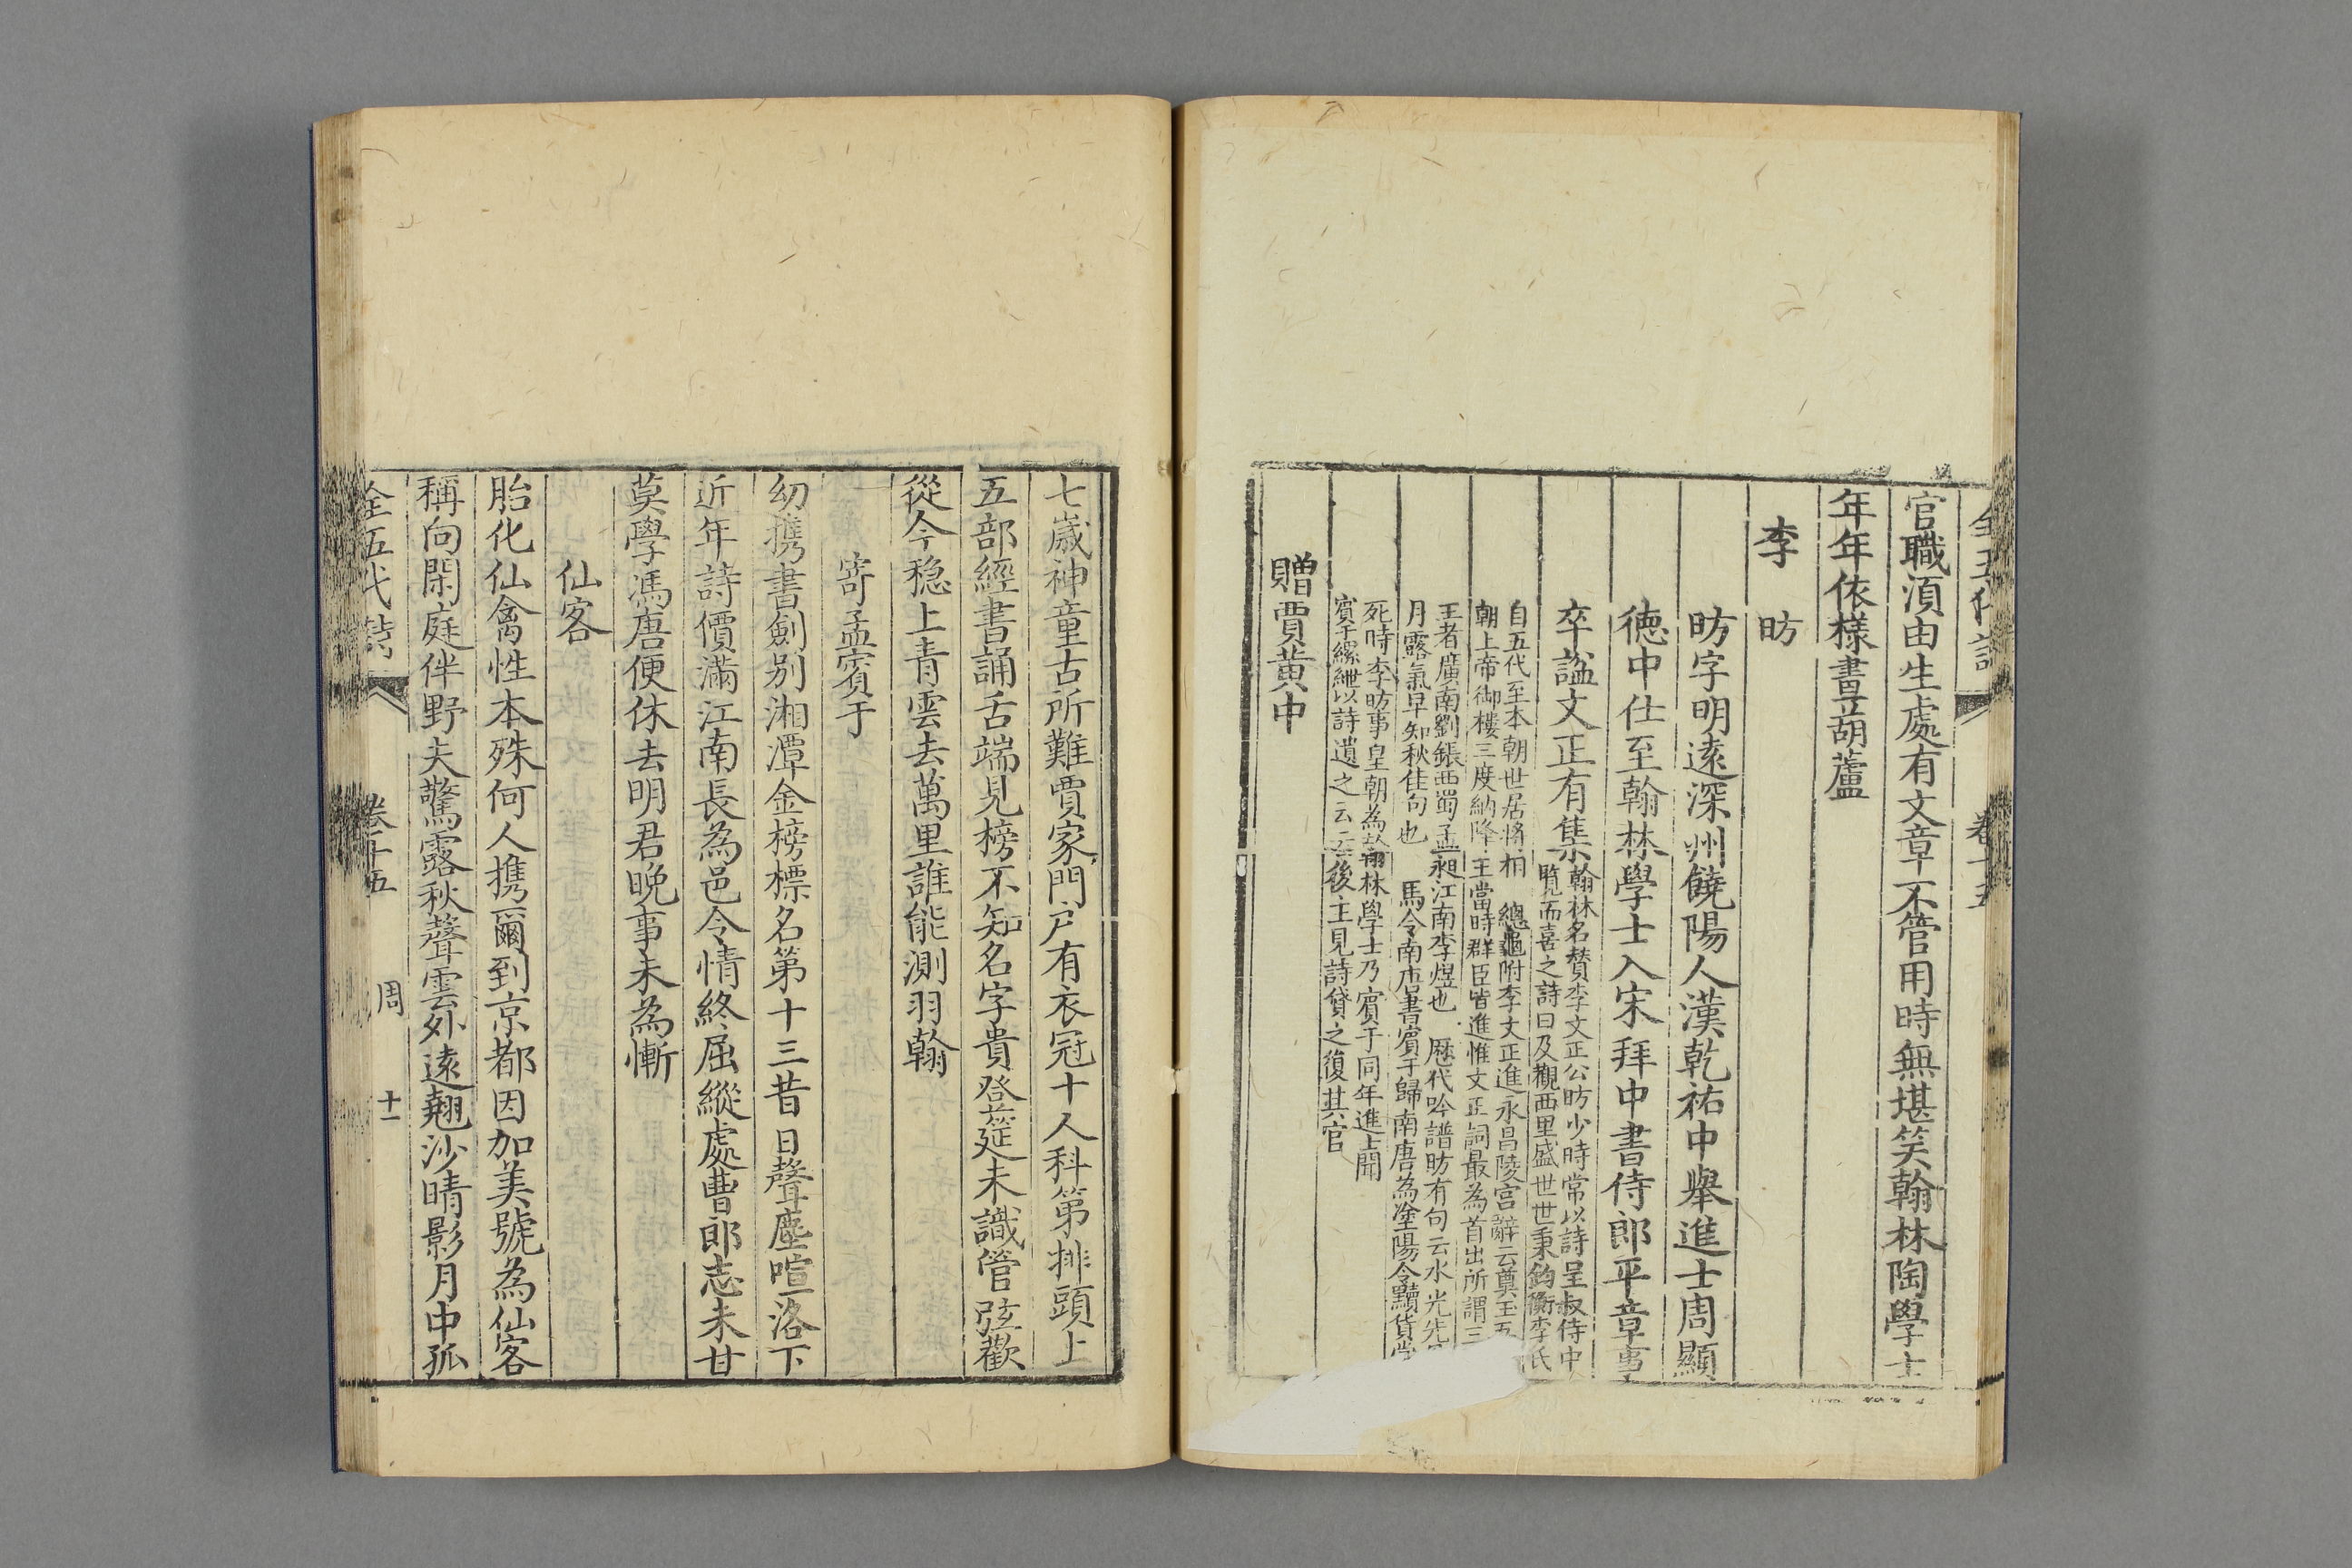 官職湏由生處有文章不管用時無堪笑翰林陶學士
年年依樣畫葫蘆
李昉
昉字明遠深州饒陽人漢乾祐中舉進士周顯
德中仕至翰林學士入宋拜中書侍郎平章事
卒諡文正有集
翰林名賛李文正公昉少時常以詩呈叔侍中
覽而喜之詩曰及觀西里盛世世秉鈞衡李氏
自五代至本朝世居將相 總龜附李文正進永昌陵宫辭云奠玉五
朝上帝御樓三度納降王當時群臣皆進惟文正詞最為首出所謂三
王者廣南劉鋹西蜀孟昶江南李煜也 歷代吟譜昉有句云水光先
月露氣早知秋佳句也 馬令南唐書賓于歸南唐為塗陽令黷貨當
死時李昉事皇朝為翰林學士乃賓于同年進上聞
賓于縲紲以詩遺之云云後主見詩貸之復其官
贈賈黄中
七歲神童古所難賈家門戸有衣冠十人科第排頭上
五部經書誦舌端見榜不知名字貴登筵未識管弦歡
從今穏上青雲去萬里誰能測羽翰
寄孟賓于
幼攜書劍别湘潭金榜標名第十三昔日聲塵喧洛下
近年詩價滿江南長為邑令情終屈縱處曹郎志未甘
莫學馮唐便休去明君晚事未為慚
仙客
胎化仙禽性本殊何人携爾到京都因加美號為仙客
稱向閑庭伴野夫驚露秋聲雲外遠翹沙晴影月中孤
全五代詩 卷十五 周 十一